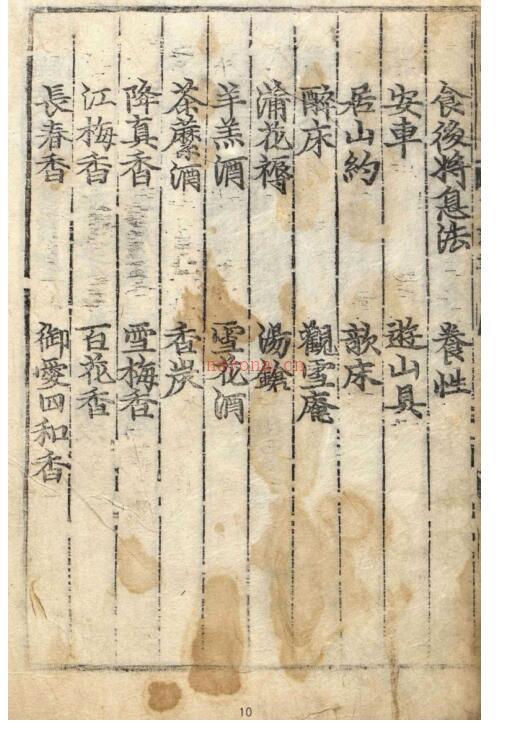 食後将息法　養性
安車　遊山具
居山約　欹床
醉床　觀雪庵
蒲花褥　湯鎗
羊羔酒　雪花酒
荼蘼酒　香炭
降真香　雪梅香
江梅香　百花香
長春香　御愛四和香
nayona.cn
10